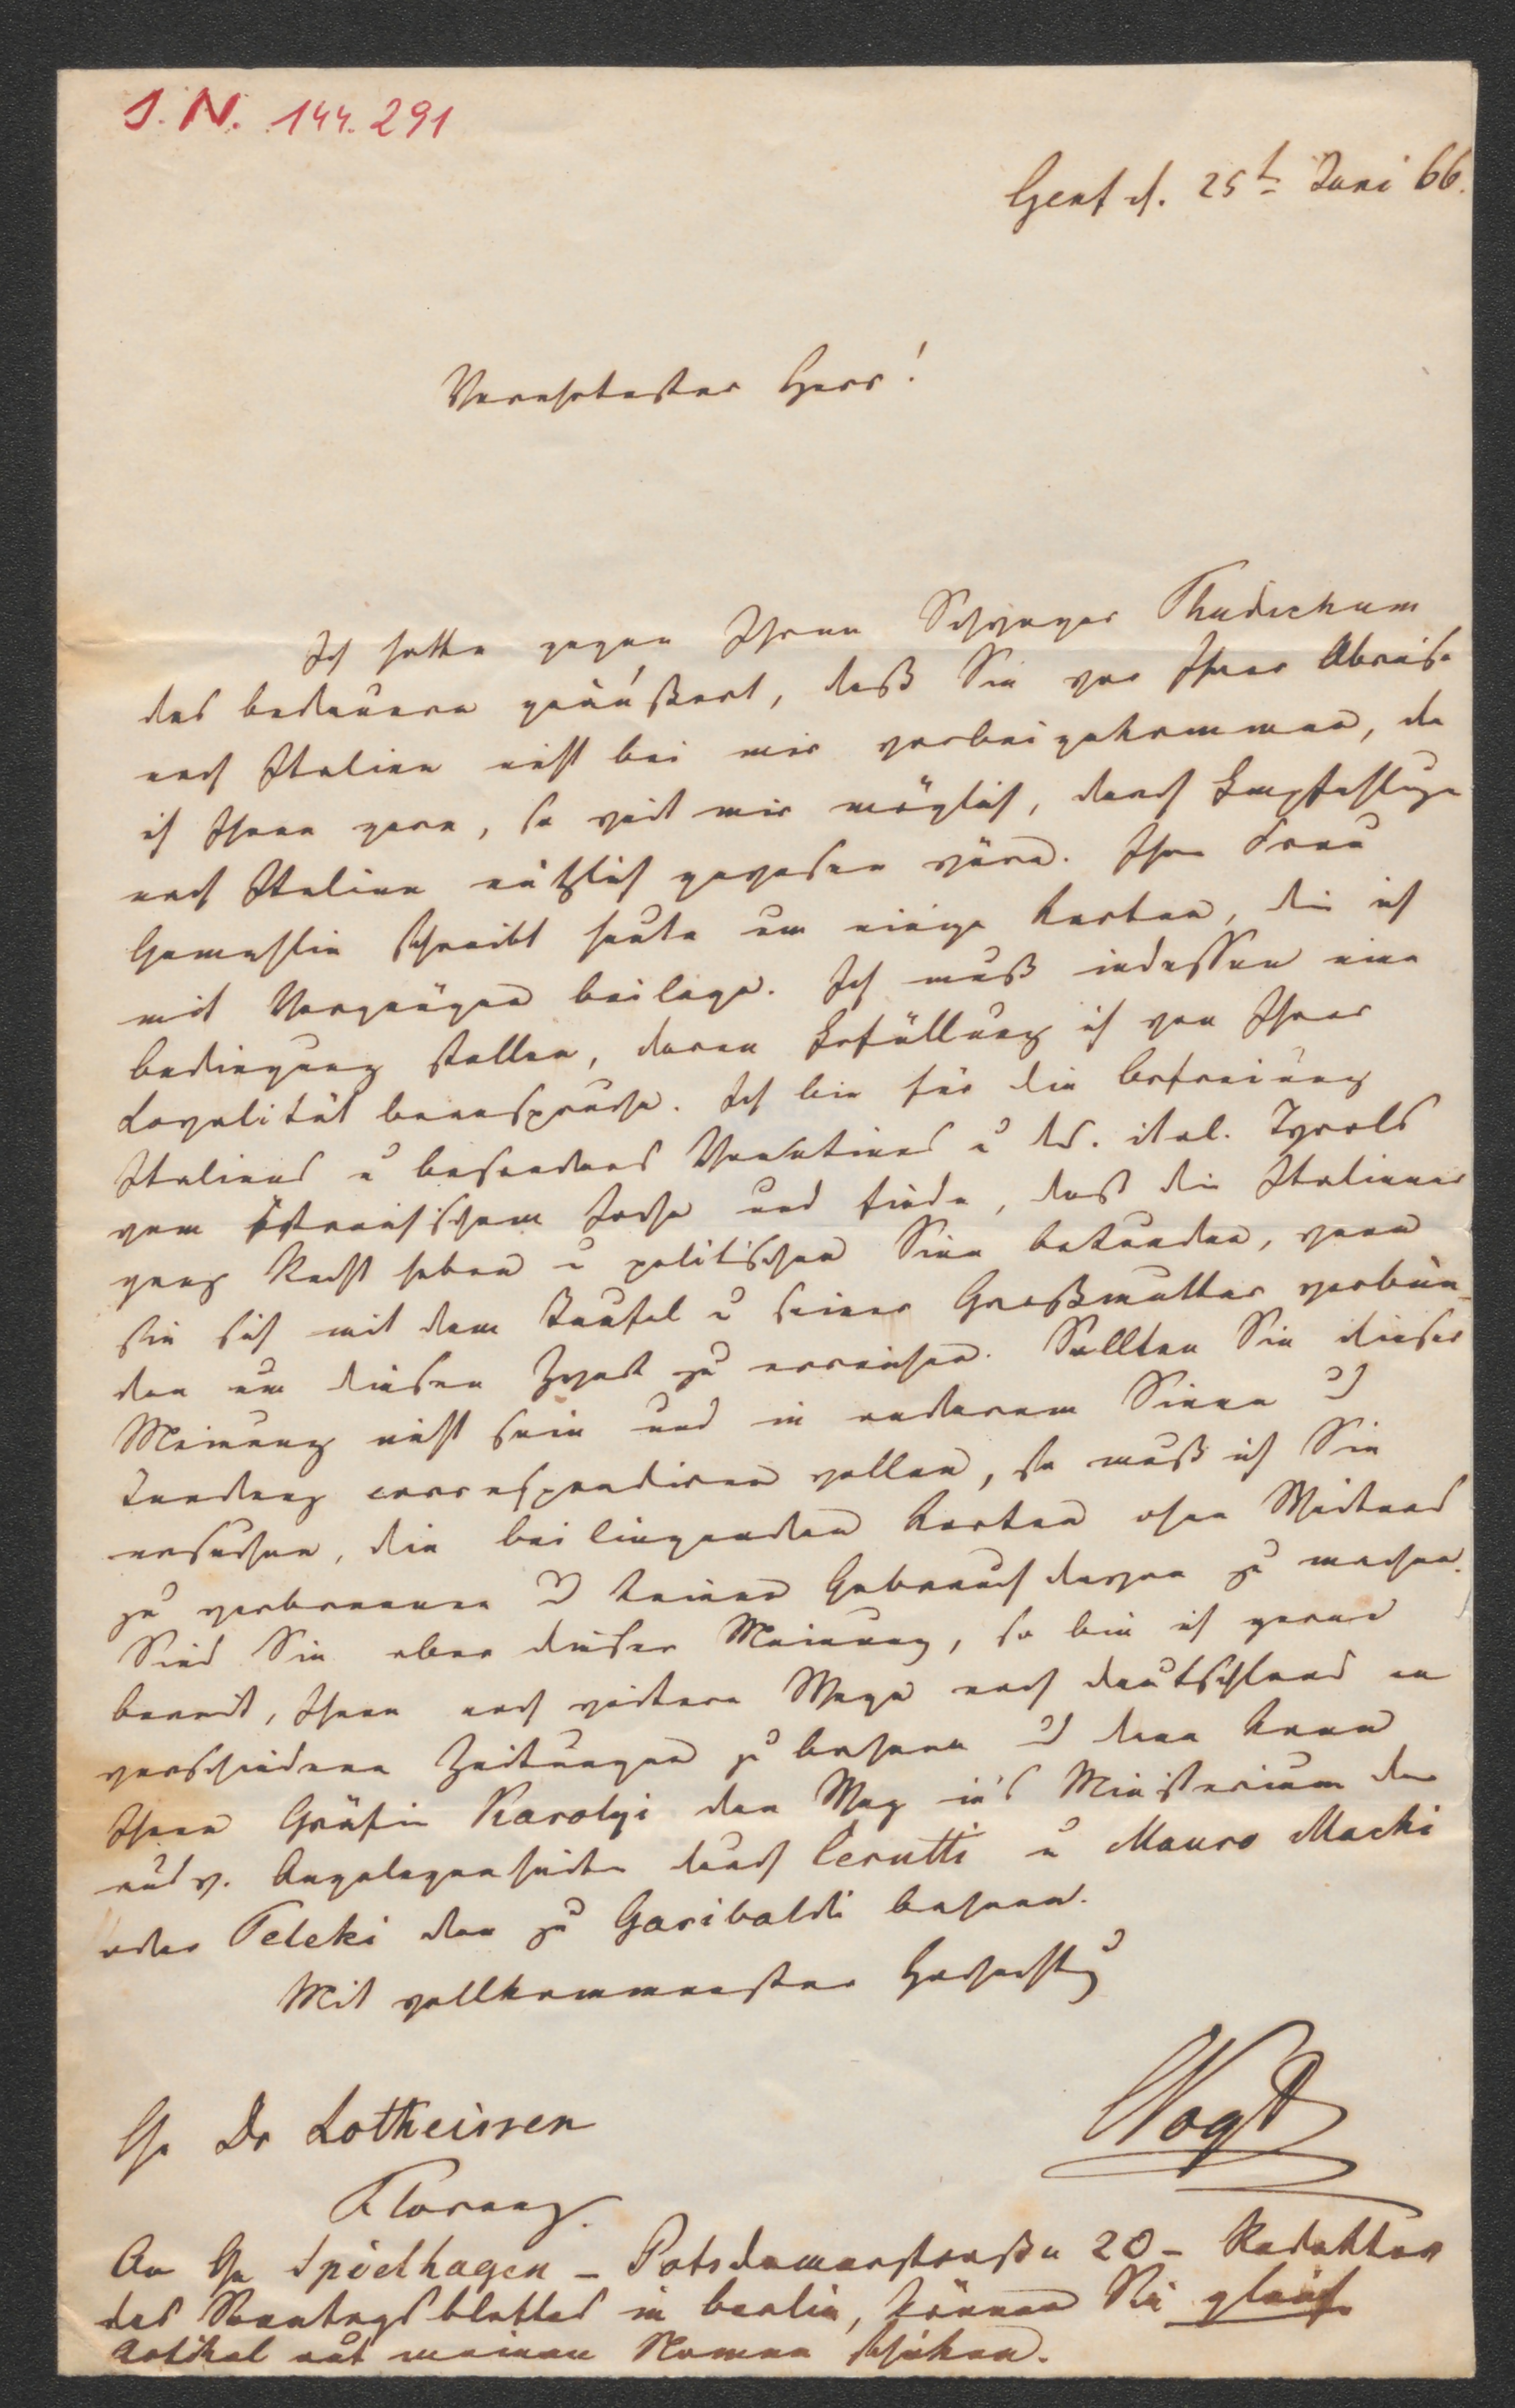 I. N. 144.291
Genf d. 25t Juni 66.
Verehrtester Herr!
Ich hatte gegen Ihren Schwager Thudichum
das Bedauern geäußert, daß Sie vor Ihrer Abreise
nach Italien nicht bei mir vorbeigekommen, da
ich Ihnen gern, so weit mir möglich, durch Empfehlungen
nach Italien nützlich gewesen wäre. Ihre Frau
Gemahlin schreibt heute um einige Karten, die ich
mit Vergnügen beilege. Ich muß indessen eine
Bedingung stellen, deren Erfüllung ich von Ihrer
Loyalität beanspruche. Ich bin für die Befreiung
Italiens u besonders Venetiens u ds. ital. Tyrols
vom östreichischem Joche und finde, daß die Italiener
ganz Recht haben u politischen Sinn bekunden, wenn
sie sich mit dem Teufel u seiner Großmutter verbün-
den um diesen Zweck zu erreichen. Sollten Sie dieser
Meinung nicht sein und in anderem Sinne u
Tendenz correspondiren wollen, so muß ich Sie
ersuchen, die beiliegenden Karten ohne Weiteres
zu verbrennen u keinen Gebrauch davon zu machen.
Sind Sie aber dieser Meinung, so bin ich gerne
bereit, Ihnen noch weitere Wege nach Deutschland an
verschiedene Zeitungen zu bahnen u dann kann
Ihnen Gräfin Karolyi den Weg in's Ministerium der
ausw. Angelegenheiten durch Cerutti u Mauro Macchi
oder Teleki den zu Garibaldi bahnen.
Mit vollkommenster Hochachtung
CVogt
H. Dr Lotheissen
Florenz.
An H. Spielhagen – Potsdamerstraße 20 – Redakteur
des Sonntagsblattes in Berlin, können Sie gleich
Artikel auf meinen Namen schicken.